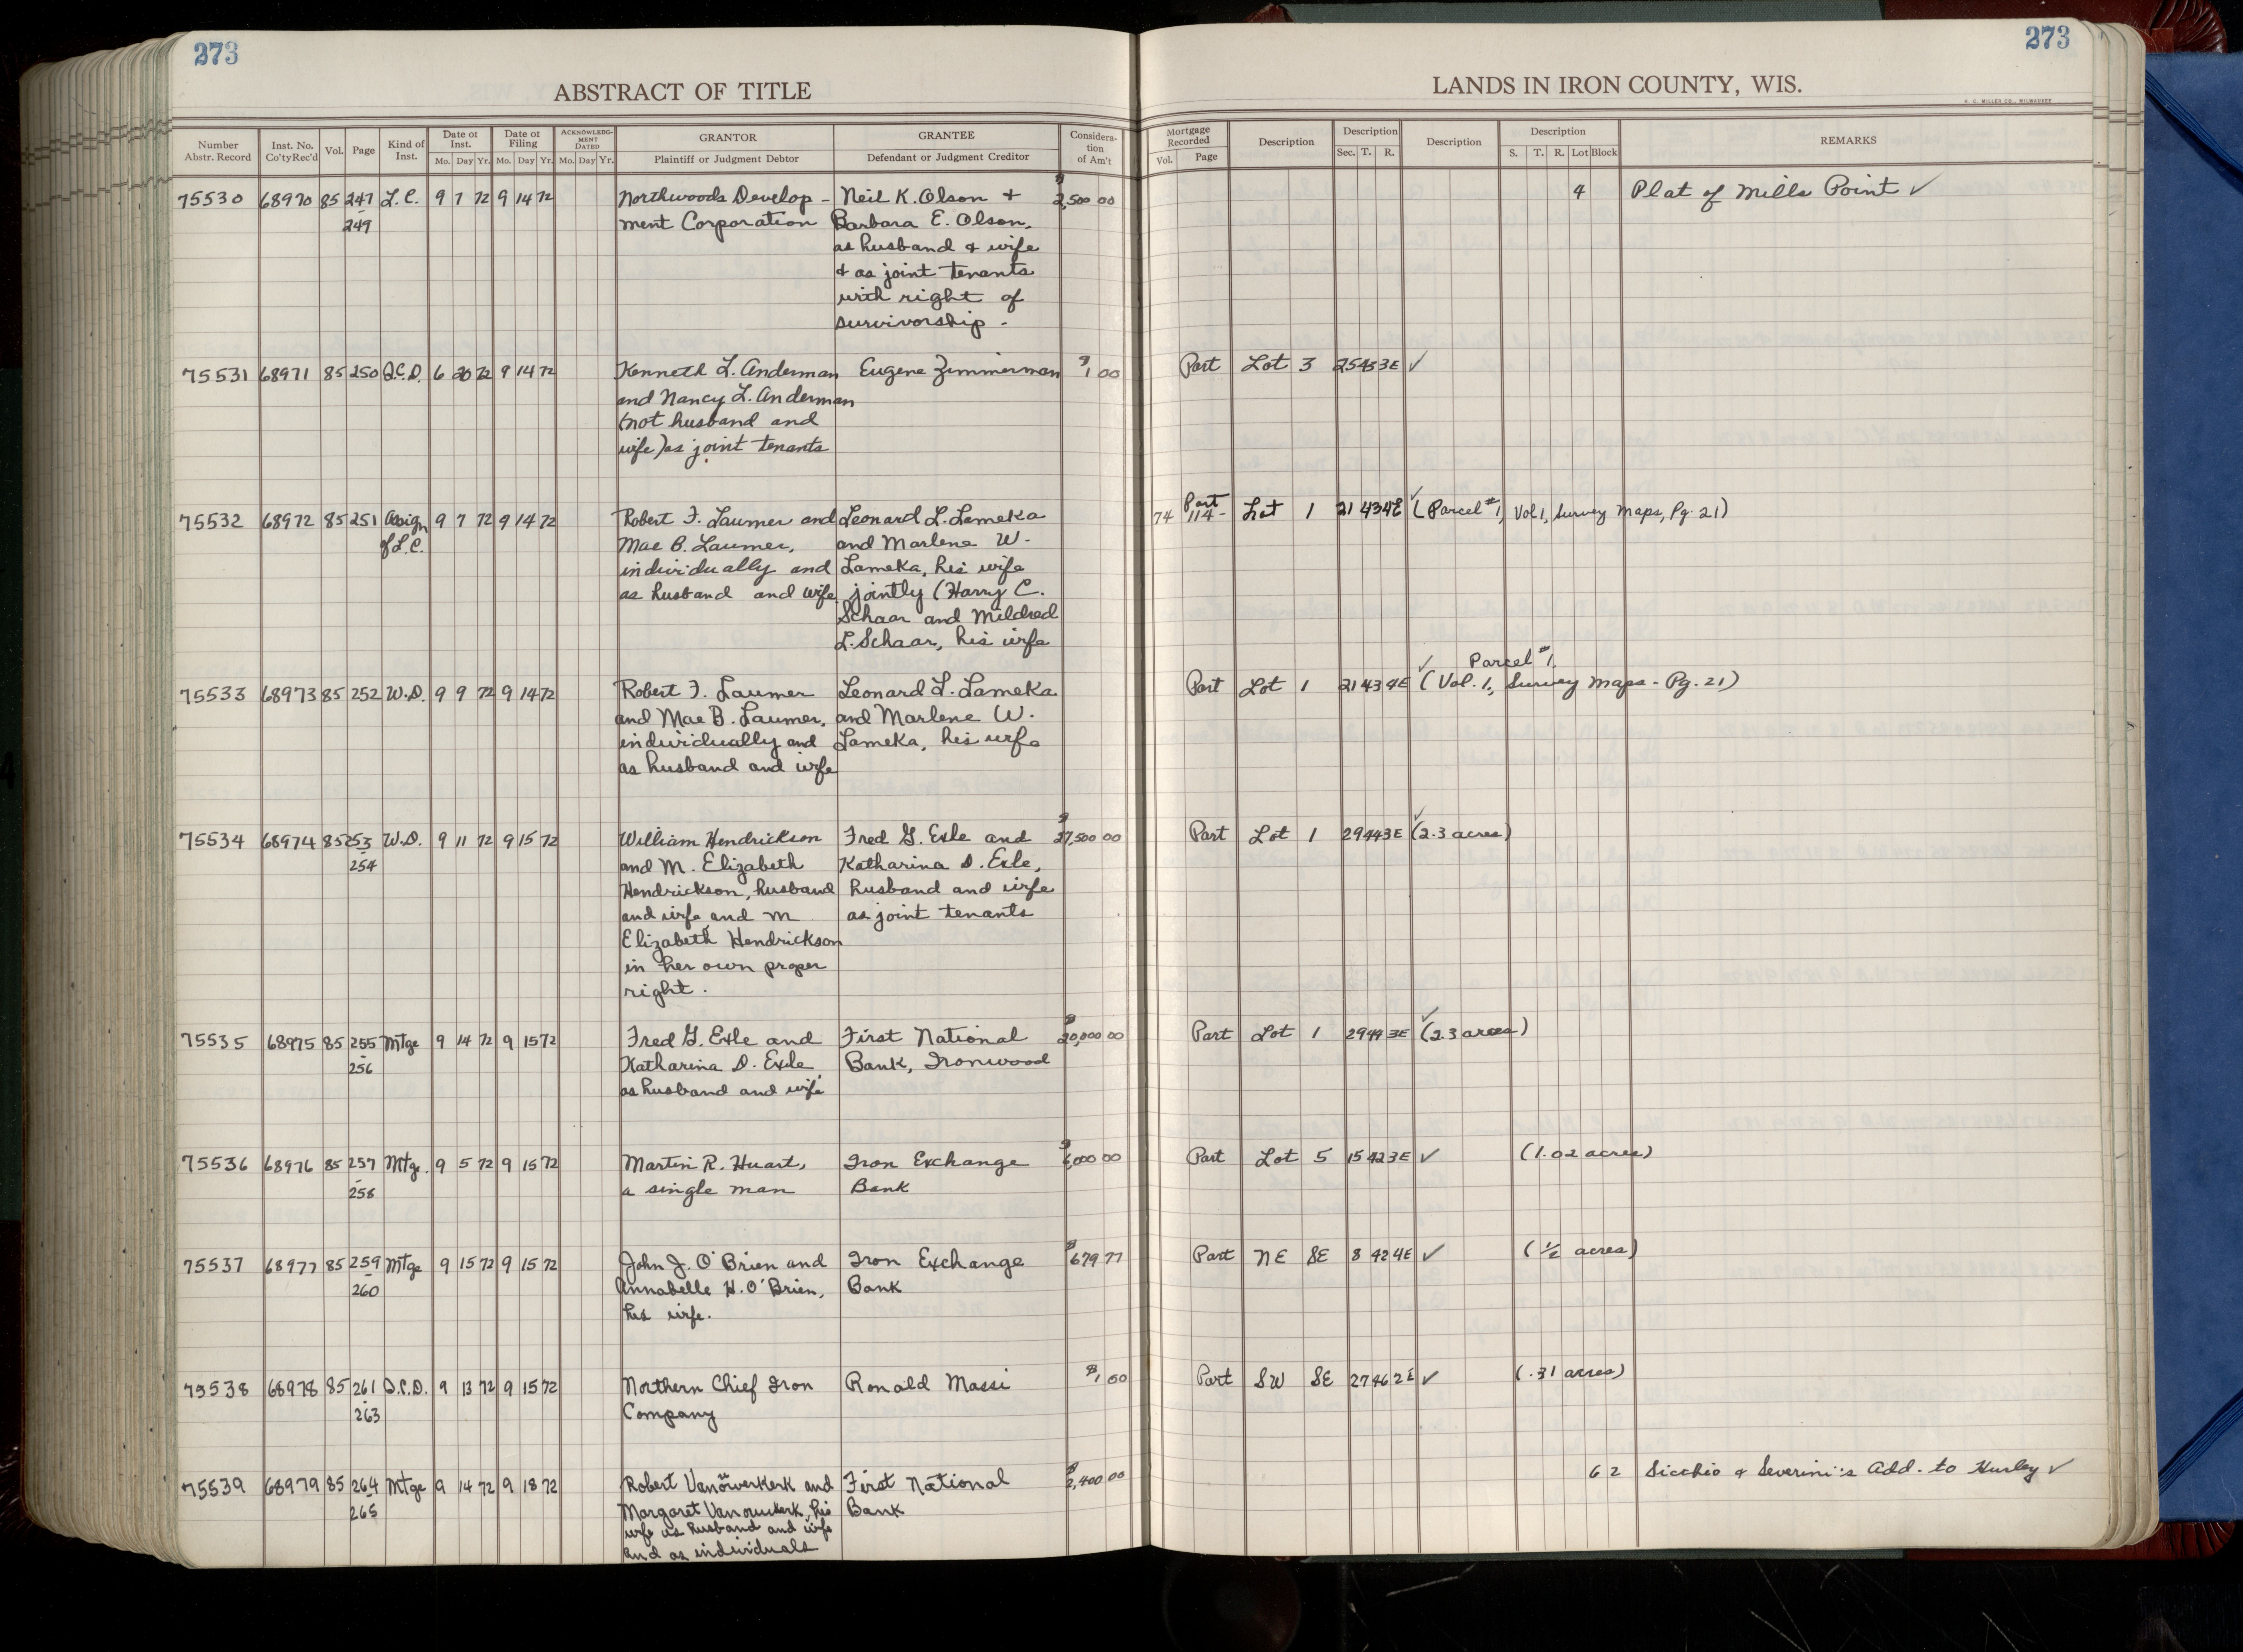 273
273
ABSTRACT OF TITLE
LANDS IN IRON COUNTY, WIS.
H. C. MILLER CO., MILWAUKEE
Number Abstr. Record | Inst. No. Co'ty Rec'd | Vol. | Page | Kind of Inst. | Date of Inst. Mo. Day Yr. | Date of Filing Mo. Day Yr. | ACKNOWLEDGMENT DATED Mo. Day Yr. | GRANTOR Plaintiff or Judgment Debtor | GRANTEE Defendant or Judgment Creditor | Consideration of Am't | Mortgage Recorded Vol. Page | Description | Description Sec. T. R. | Description | Description S. T. R. Lot Block | REMARKS
75530 68970 85 247 L.C. 9 7 72 9 14 72 Northwoods Develop- Neil K. Olson + $2,500 00 4 Plat of Mills Point ✓
249 ment Corporation Barbara E. Olson,
as husband & wife
& as joint tenants
with right of
survivorship.
75531 68971 85 250 Q.C.D. 6 20 72 9 14 72 Kenneth L. Anderman Eugene Zimmerman $1 00 Part Lot 3 25 43 3E ✓
and Nancy L. Anderman
(not husband and
wife) as joint tenants
75532 68972 85 251 Assign 9 7 72 9 14 72 Robert F. Laumer and Leonard L. Lameka 74 Part 114- Lot 1 21 43 4E ✓ (Parcel #1, Vol 1, Survey Maps, Pg. 21)
of L.C. Mae B. Laumer, and Marlene W.
individually and Lameka, his wife
as husband and wife jointly (Harry C.
Schaar and Mildred
L. Schaar, his wife
✓ Parcel #1
75533 68973 85 252 W.D. 9 9 72 9 14 72 Robert F. Laumer Leonard L. Lameka Part Lot 1 21 43 4E (Vol. 1, Survey Maps - Pg. 21)
and Mae B. Laumer, and Marlene W.
individually and Lameka, his wife
as husband and wife
75534 68974 85 253 W.D. 9 11 72 9 15 72 William Hendrickson Fred G. Exle and $27,500 00 Part Lot 1 29 44 3E ✓ (2.3 acres)
-254 and M. Elizabeth Katharina D. Exle,
Hendrickson, husband husband and wife
and wife and M as joint tenants
Elizabeth Hendrickson
in her own proper
right.
75535 68975 85 255 Mtge 9 14 72 9 15 72 Fred G. Exle and First National $20,000 00 Part Lot 1 29 44 3E ✓ (2.3 acres)
-256 Katharina D. Exle, Bank, Ironwood
as husband and wife
75536 68976 85 257 Mtge. 9 5 72 9 15 72 Martin R. Huart, Iron Exchange 000 00 Part Lot 5 15 42 3E ✓ (1.02 acres)
-258 a single man Bank
75537 68977 85 259 Mtge 9 15 72 9 15 72 John J. O'Brien and Iron Exchange $679 77 Part NE SE 8 42 4E ✓ (½ acres)
-260 Annabelle H. O'Brien, Bank
his wife.
75538 68978 85 261 Q.C.D. 9 13 72 9 15 72 Northern Chief Iron Ronald Massi $1 00 Part SW SE 27 46 2E ✓ (.31 acres)
-263 Company
75539 68979 85 264 Mtge 9 14 72 9 18 72 Robert Vanouwerkerk and First National $2,400 00 6 2 Sicchio & Severini's Add. to Hurley ✓
265 Margaret Vanouwerkerk, his Bank
wife as husband and wife
and as individuals